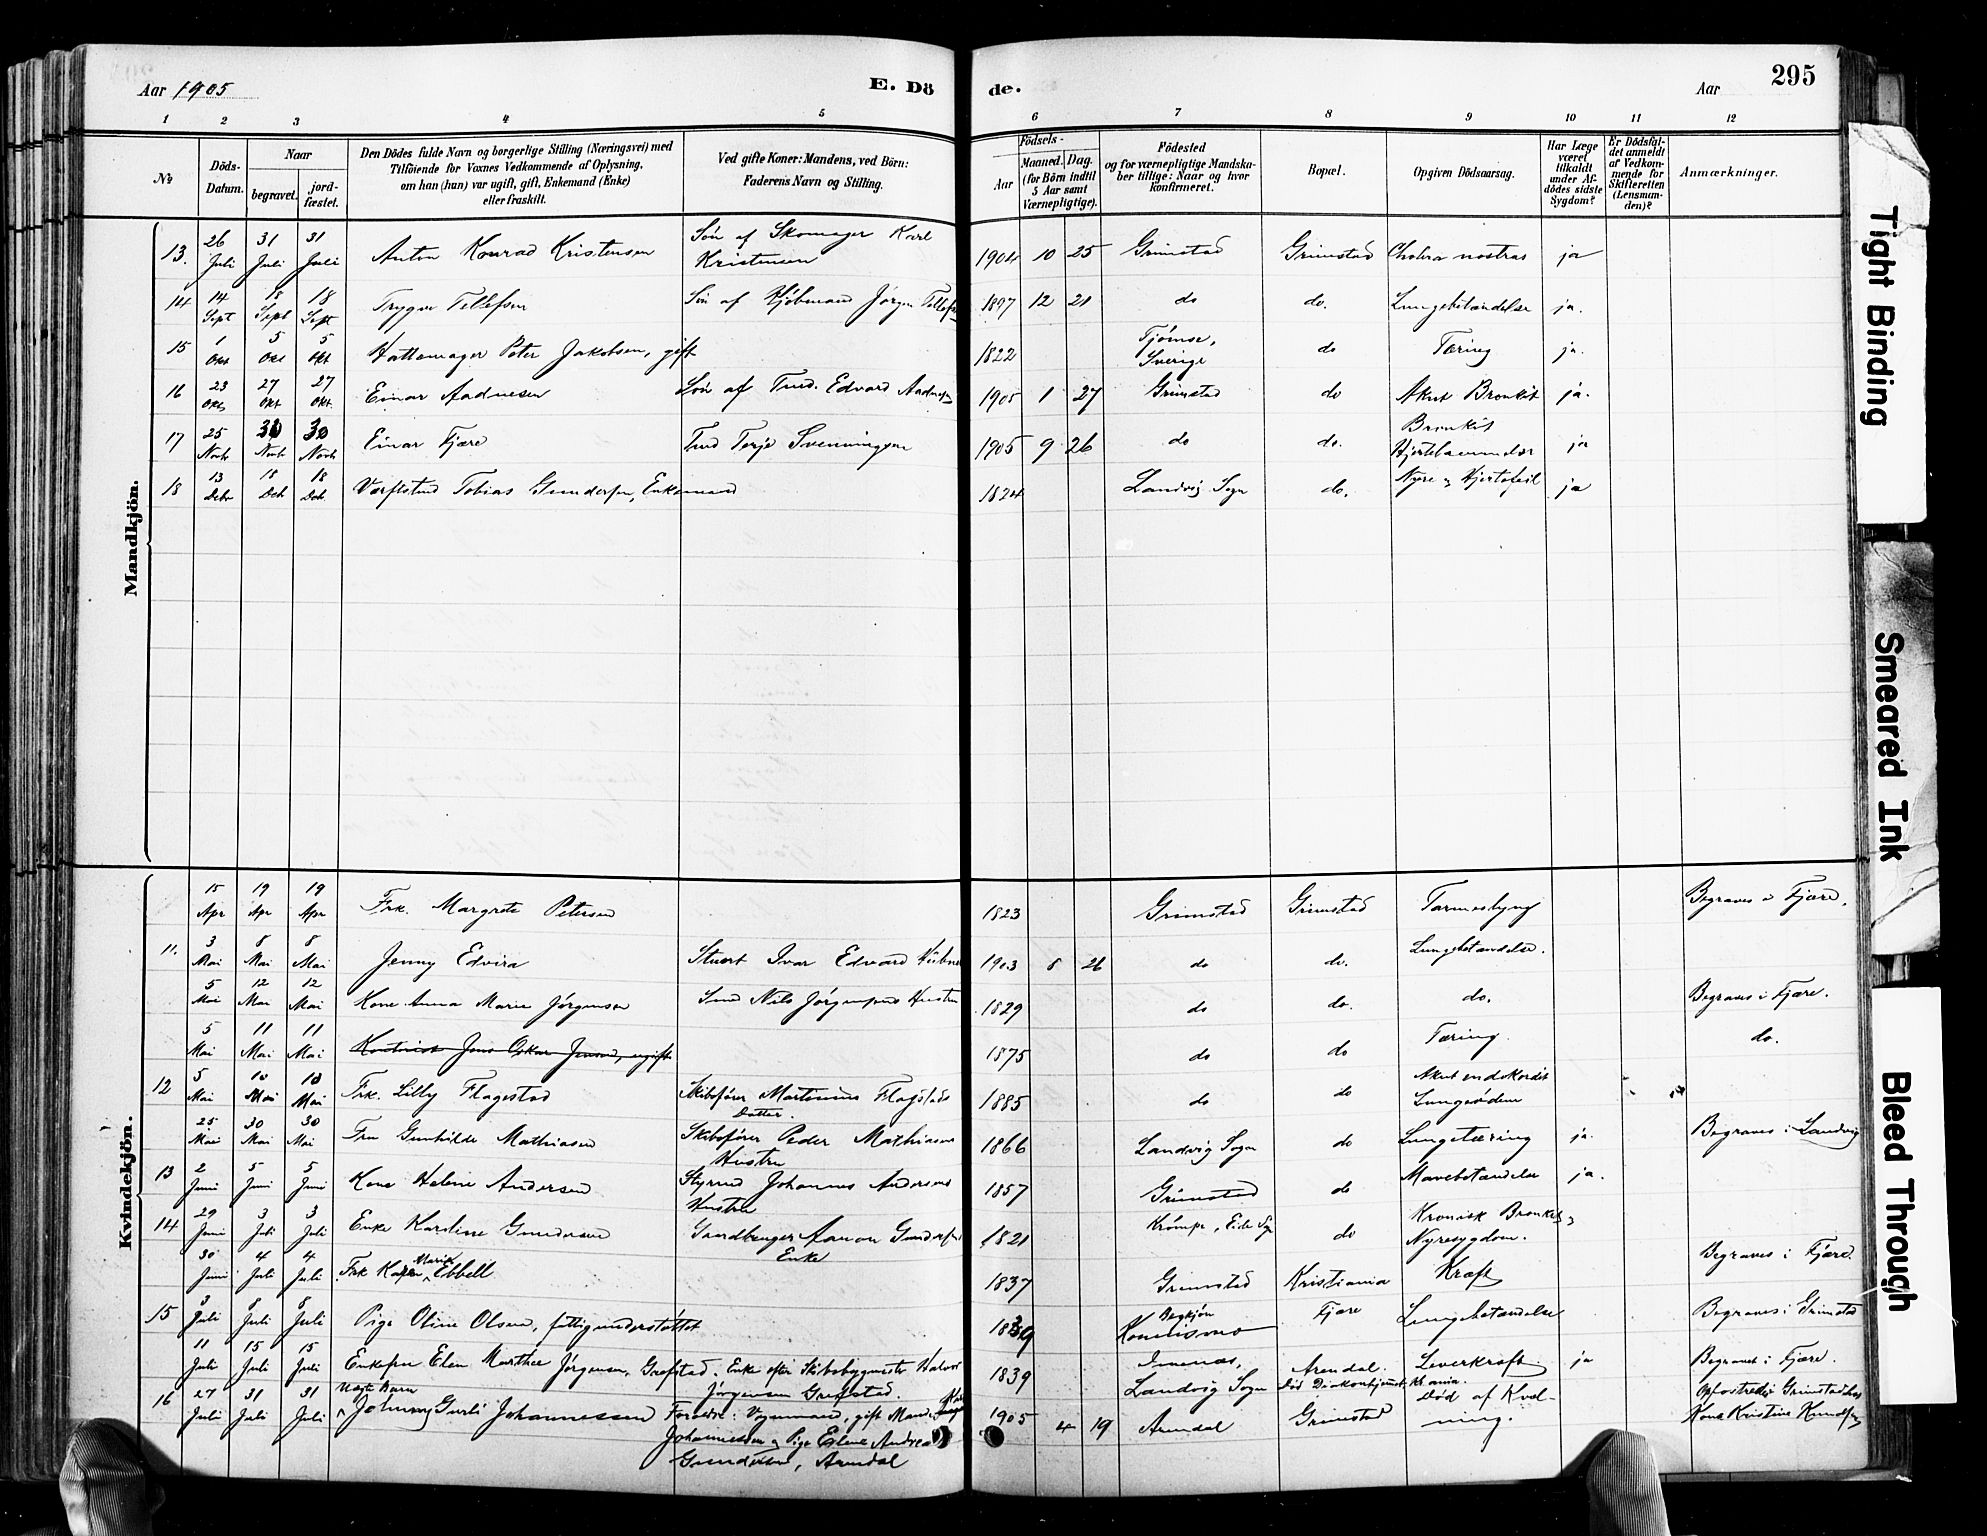 Aar 1905
E. Dö
de.
Aar
295
1 2 3 4 5 6 7 8 9 10 11 12
No
Döds-Datum.
Naar
begravet.
jord-fæstet.
Den Dödes fulde Navn og borgerlige Stilling (Næringsvei) med
Tilföiende for Voxnes Vedkommende af Oplysning,
om han (hun) var ugift, gift, Enkemand (Enke)
eller fraskilt.
Ved gifte Koner: Mandens, ved Börn:
Faderens Navn og Stilling.
Födsels-
Aar
Maaned. Dag.
(for Börn indtil
5 Aar samt
Værnepligtige).
Födested
og for værnepligtige Mandska-
ber tillige: Naar og hvor
konfirmeret.
Bopæl.
Opgiven Dödsaarsag.
Har Læge
været
tilkaldt
under Af-
dödes sidste
Sygdom?
Er Dödsfal-
det anmeldt
af Vedkom-
mende for
Skifteretten
(Lensman-
den)?
Anmærkninger.
Mandkjön.
13. 26 Juli 31 Juli 31 Juli Anton Konrad Kristensen Sön af Skomager Karl Kristensen 1904 10 25 Grimstad Grimstad Cholera nostras ja
14 14 Sept 18 Sept 18 Sept Trygve Tellefsen Sön af Kjöbmand Jörgen Tellefsen 1897 12 21 do do. Lungebetændelse ja.
15 1 Okt 5 Okt 5 Okt Hattemager Peter Jakobsen, gift 1822 Sverige do Tæring ja.
16 23 Okt 27 Okt 27 Okt Einar Aadnesen Sön af Tmd. Edvard Aadnesen 1905 1 27 Grimstad do Akut Bronkit ja.
17 25 Novb 30 Novb 30 Novb Einar Fjære Tmd Terje Svenningsen 1905 9 26 do do. Bronkit ja
18 13 Deb 18 Deb 18 Deb Værftstmd Tobias Gundersen, Enkemand 1824 Landvig Sogn do. Nyre og Hjertefeil ja
Kvindekjön.
15 Apr 19 Apr 19 Apr Frk. Margrete Petersen 1823 Grimstad Grimstad Tarmeslyng Begraves i Fjære.
11. 3 Mai 8 Mai 8 Mai Jenny Edvira Stuert Ivar Edvard 1903 8 26 do do. Lungebetændelse.
5 Mai 12 Mai 12 Mai Kone Anna Marie Jörgensen Smd Nils Jörgensens Hustru 1829 do do. do. Begraves i Fjære.
5 Mai 11 Mai 11 Mai Kontorist Jens Oskar Jensen, ugift 1875 do do Tæring. do.
12 5 Mai 10 Mai 10 Mai Frk. Lilly Flagestad Skibsförer Martinius Flagstads Datter. 1885 do do Akut endokordit Lungeödem
25 Mai 30 Mai 30 Mai Fru Gunhilde Mathiasen Skibsförer Peder Mathiasens Hustru 1866 Landvig Sogn do Lungetæring ja. Begraves i Landvig
13 2 Juni 5 Juni 5 Juni Kone Helene Andersen Styrmd Johannes Andersens Hustru 1857 Grimstad do Mavebetændelse ja.
14 29 Juni 3 Juli 3 Juli Enke Karoline Gundersen Aanon Gundersens Enke 1821 Eide Sogn do Kronisk Bronkit og Nyresygdom.
30 Juni 4 Juli 4 Juli Frk Karen Marie Ebbell 1837 Grimstad Kristiania Kræft Begraves i Fjære.
15 3 Juli 8 Juli 8 Juli Pige Oline Olsen, fattigunderstöttet 1839 Fjære Lungebetændelse Begraves i Grimstad
11 Juli 15 Juli 15 Juli Enkefru Elen Marthea Jörgensen, Grefstad. Enke efter Skibsbygmester Halvor Jörgensen Grefstad. 1839 Landvig Sogn Arendal. Leverkræft ja Begravet i Fjære.
16 27 Juli 31 Juli 31 Juli Uægte Barn Johanne Gurli Johannessen Forældre: Vognmand, gift Johannessen og Pige Elene Andrea Gundersen, Arendal 1905 4 19 Arendal Grimstad Död af Kvæl-
ning. Opfostredes i Grimstad hos Kone Kristine Knudsen
Tight Binding
Smeared Ink
Bleed Through